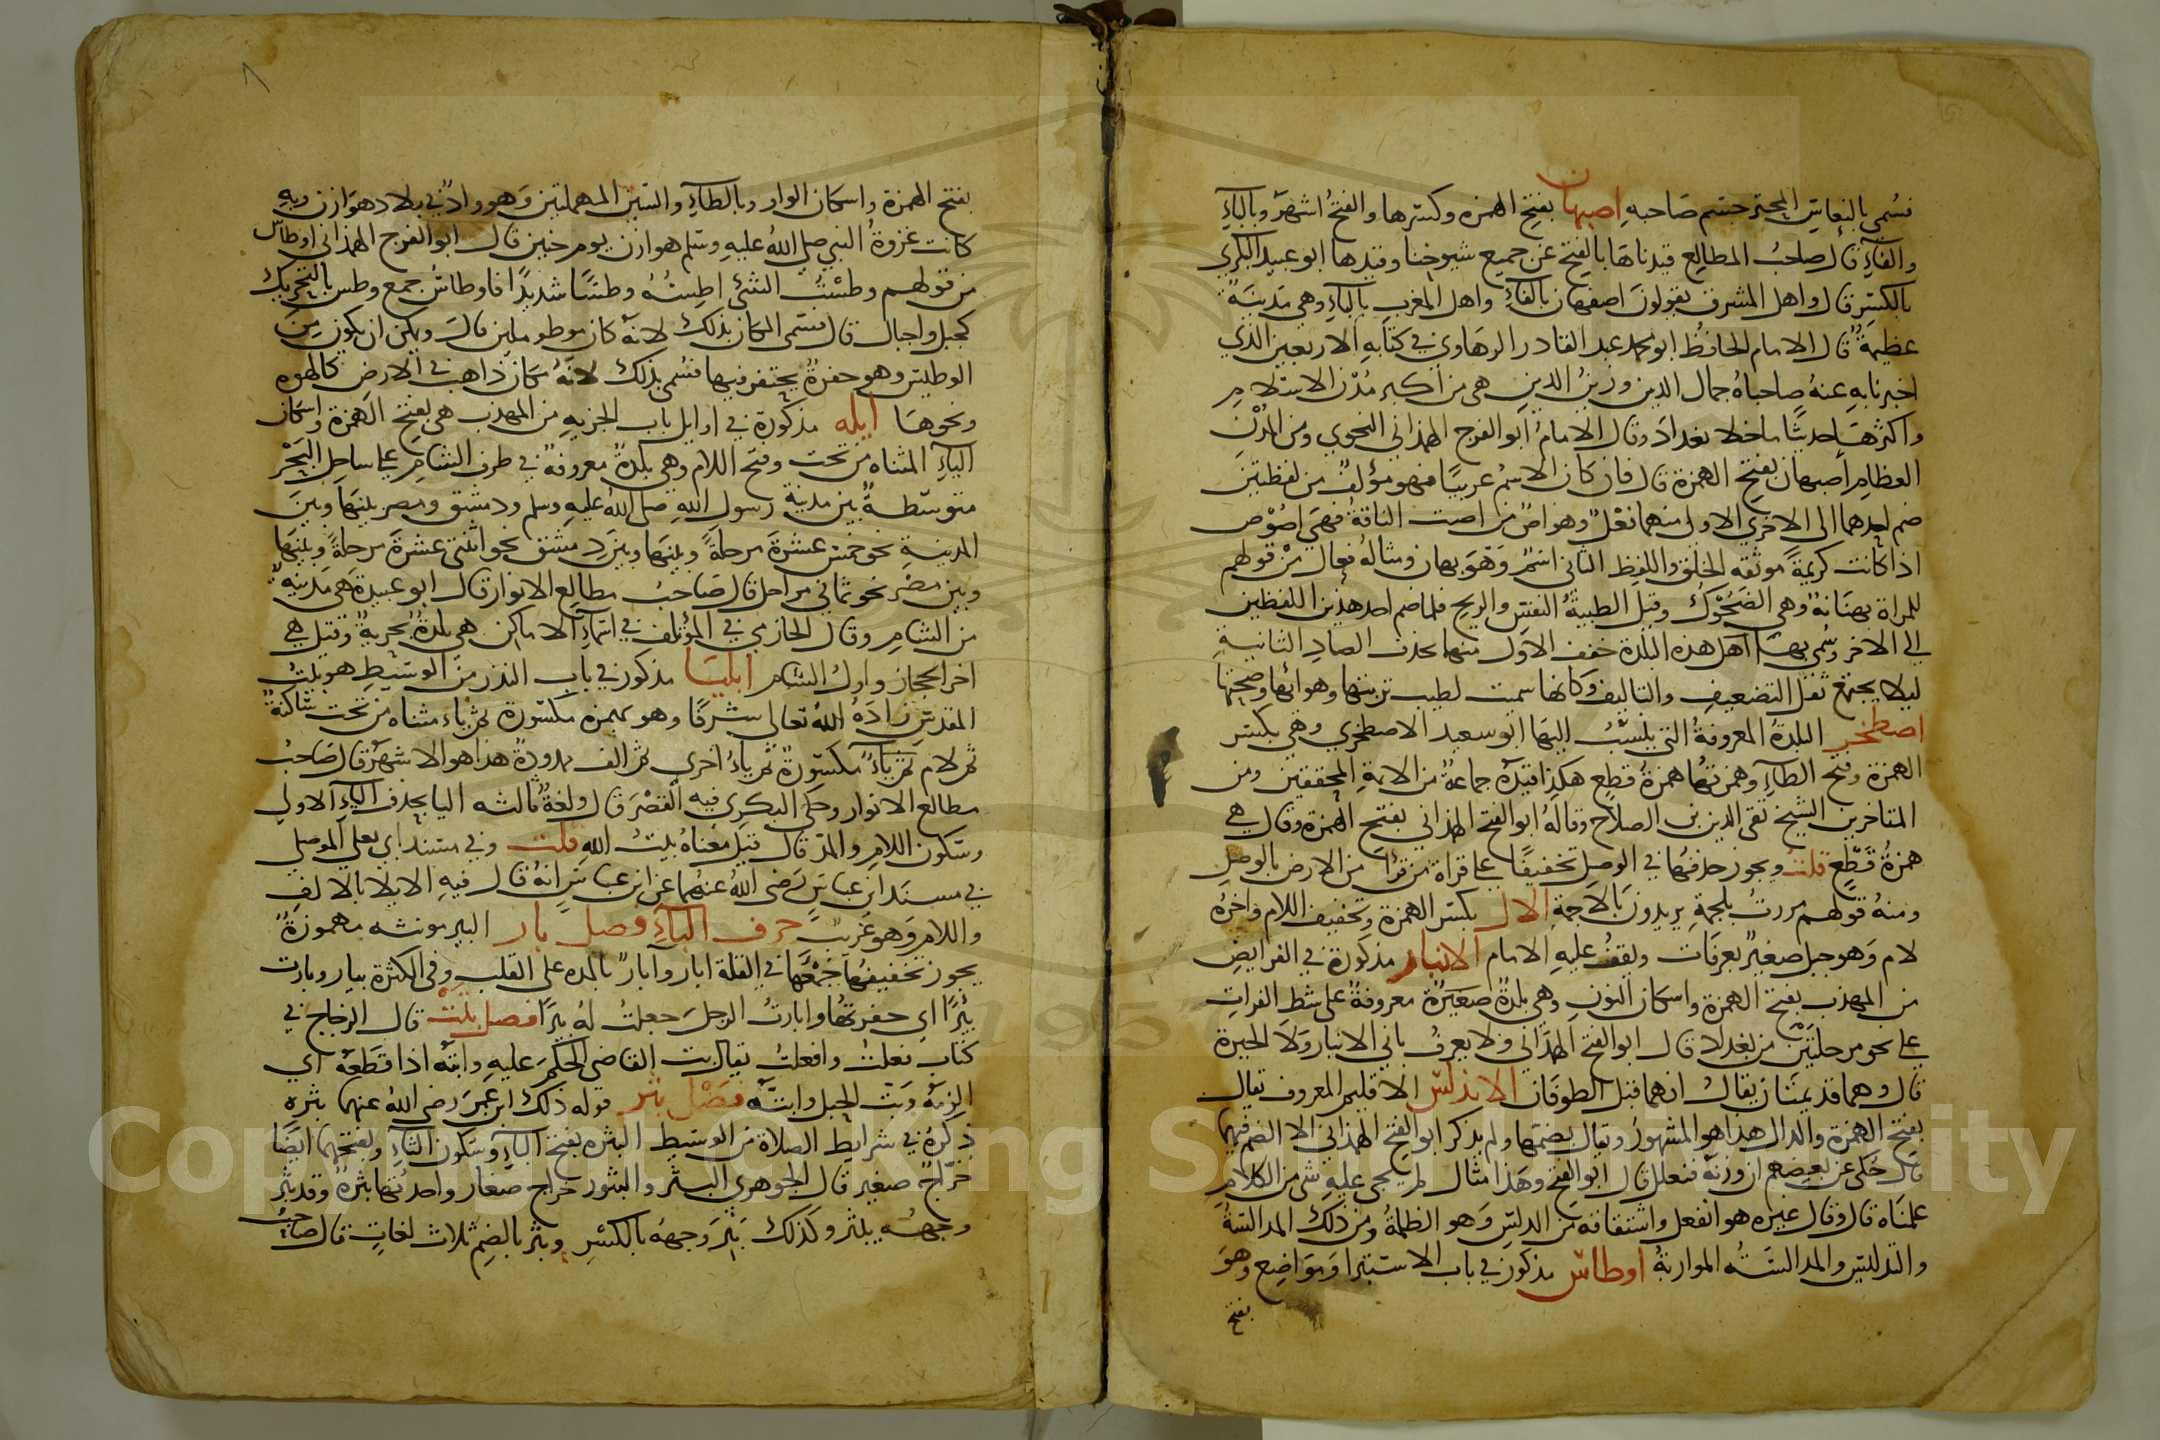 فسمي بالنعاس المحبر جسم صاحبه اصبهان بفتح الهمزه وكسرها والفتح اشهر وبالبآء
والفآء قال صاحب المطالع قيدناها بالفتح عن جميع شيوخنا وقيدها ابو عبيد البكري
بالكسر قال واهل المشرق يقولون اصفهان بالفآء واهل المغرب بالبآء وهي مدينة
عظيمة قال الامام الحافظ ابو محمد عبد القادر الرهاوي في كتابه الاربعين الذي
اخبرنا به عنه صاحباه جمال الدين وزين الدين هي من اكبر مدن الاسلام
واكثرها حديثا ما خلا بغداد وقال الامام ابو الفرج الهمذاني النحوي ومن المدن
العظام أصبهان بفتح الهمزة قال فان كان الاسم عربيا فهو مؤلف من لفظتين
ضم احدهما الى الاخرى الاول منهما فعل وهو اص من اصت الناقة فهي اصوص
اذا كانت كريمة موثقه الخلق واللفظ الثاني اسم وهو بهان ومثاله فعال من قولهم
للمراة بهنانة وهي الضحوك وقيل الطيبة النفس والريح فلما ضم احد هذين اللفظين
الى الاخر وسمي بهما اهل هذه البلدة خفف الاول منهما بحذف الصاد الثانية
ليلا يجتمع ثقل التضعيف والتاليف وكانها سميت لطيب تربتها وهوائها وصحتها
اصطخر البلدة المعروفة التي ينسب اليها ابو سعيد الاصطخري وهي بكسر
الهمزة وفتح الطآء وهمزتها همزة قطع هكذا قيده جماعة من الايمة المحققين ومن
المتاخرين الشيخ تقي الدين بن الصلاح وقاله ابو الفتح الهمذاني بفتح الهمزة وقال هي
همزة قطع قلت ويجوز حذفها في الوصل تخفيفا على قراة من قرا من الارض بالوصل
ومنه قولهم مررت بلجمة يريدون بالاجمة الالال بكسر الهمزة وتخفيف اللام واخره
لام وهو جبل صغير بعرفات ويقف عليه الامام الانبار مذكورة في الفرايض
من المهذب بفتح الهمزة واسكان النون وهي بلدة صغيرة معروفة على شط الفرات
على نحو مرحلتين من بغداد قال ابو الفتح الهمذاني ولا يعرف باني الانبار ولا الحيرة
قال وهما قديمتان يقال انهما قبل الطوفان الاندلس الاقليم المعروف يقال
بفتح الهمزة والدال هذا هو المشهور ويقال بضمها ولم يذكر ابو الفتح الهمذاني الا الضم فيهما
قال حكى عن بعضهم ان وزنه فنعلل قال ابو الفتح وهذا مثال لم يجي عليه شي من الكلام
علمناه قال وقال غيره هو انفعل واشتقاقه من الدلس وهو الظلمة ومن ذلك المدالسة
والتدليس والمدالسه المواربة اوطاس مذكور في باب الاستبرا ومواضع وهو
بفتح
بفتح الهمزة واسكان الواو وبالطآء والسين المهملتين وهو واد في بلاد هوازن وبه
كانت غزوة النبي صلى الله عليه وسلم هوازن يوم حنين قال ابو الفرج الهمذاني اوطاس
من قولهم وطست الشئ اطسه وطسا شديدا فاوطاس جمع وطس بالتحريك
كجبل واجبال قال فسمى المكان بذلك لانه كان موطوملين قال ويمكن ان يكون من
الوطيس وهو حفرة يحتفر فيها فسمى بذلك لانه مكان ذاهب في الارض كالهوه
ونحوها ايله مذكورة في اوايل باب الجزيه من المهذب هي بفتح الهمزة واسكان
اليآء المثناه من تحت وفتح اللام وهي بلدة معروفة في طرف الشام على ساحل البحر
متوسطة بين مدينة رسول الله صلى الله عليه وسلم ودمشق ومصر بينها وبين
المدينة نحو خمس عشرة مرحلة وبينها وبين دمشق نحو اثنتي عشرة مرحلة وبينها
وبين مصر نحو ثماني مراحل قال صاحب مطالع الانوار قال ابو عبيدة هي مدينة
من الشام وقال الحازمي في المؤتلف في اسمآء الاماكن هي بلدة بحرية وقيل هي
اخر الحجاز واول الشام ايليا مذكور في باب النذر من الوسيط هو بيت
المقدس زاده الله تعالى شرفا وهو بهمزه مكسورة ثم يآء مثناه من تحت ساكنة
ثم لام ثم يآء مكسورة ثم يآء اخرى ثم الف ممدودة هذا هو الاشهر قال صاحب
مطالع الانوار وحكى البكري فيه القصر قال ولغة ثالثه اليا بحذف اليآء الاولى
وسكون اللام والمد قال قيل معناه بيت الله قلت وفي مسند ابي يعلى الموصلي
في مسند ابن عباس رضى الله عنهما عن ابن عباس انه قال فيه الايلا بالالف
واللام وهو غريب حرف البآء فصل بار البير مونثه مهموزة
يجوز تخفيفها جمعها في القلة ابار وآبار بالمده على القلب وفي الكثرة بيار وبارت
بئرا اي حفرتها وابارت الرجل جعلت له بيرا فصل بتت قال الزجاج في
كتاب فعلت وافعلت يقال بت القاضى الحكم عليه وابته اذا قطعه اي
الزمه وبت الحبل وابته فصل بثر قوله ذلك ابن عمر رضى الله عنهما بثره
ذكره في شرايط الصلاة من الوسيط البثره بفتح البآء وسكون الثآء وبفتحها ايضا
خراج صغير قال الجوهري البثر والبثور خراج صغار واحدتها بثرة وقد بثر
وجهه يبثر وكذلك بثر وجهه بالكسر وبثر بالضم ثلاث لغات قال صاحب